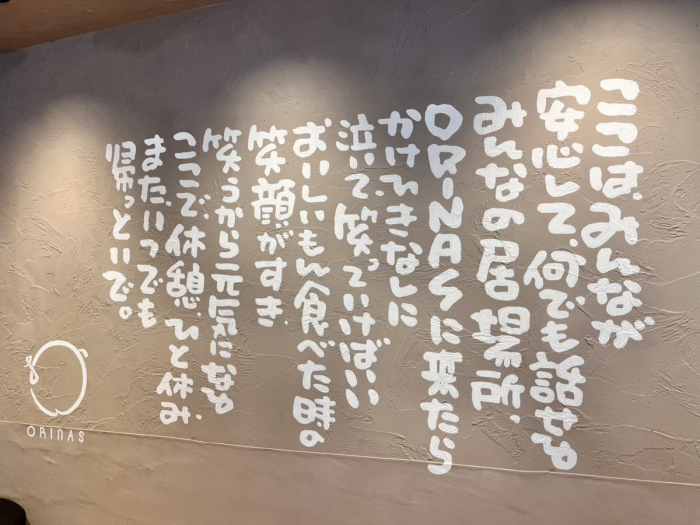 ここは、みんなが
安心して、何でも話せる。
みんなの居場所、
ORINASに来たら
かけひきなしに
泣いて、笑っていけばいい
おいしいもん食べた時の
笑顔がすき、
笑うから元気になる。
ここで、休憩、ひと休み、
また、いつでも
帰っといで。
ORINAS